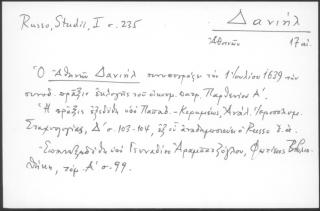 Russo, Studii, I σ. 235
Δανιήλ
Ἀθηνῶν 17 αἰ.
Ὁ Ἀθηνῶν Δανιήλ συνυπογράφει τὴν 1 Ἰουλίου 1639 τὴν
συνοδ. πρᾶξιν ἐκλογῆς τοῦ οἰκουμ. πατρ. Παρθενίου Α΄.
Ἡ πρᾶξις ἐξεδόθη ὑπὸ Παπαδ.-Κεραμέως, Ἀνάλ. Ἱεροσολυμ.
Σταχυολογίας, Δ΄ σ. 103-104, ἐξ οὗ ἀναδημοσιεύει ὁ Russo ἔ.ἀ.
Ἐπανεξεδόθη ὑπὸ Γενναδίου Ἀραμπατζόγλου, Φωτίειος Βιβλιο-
θήκη, τόμ. Α΄ σ. 99.